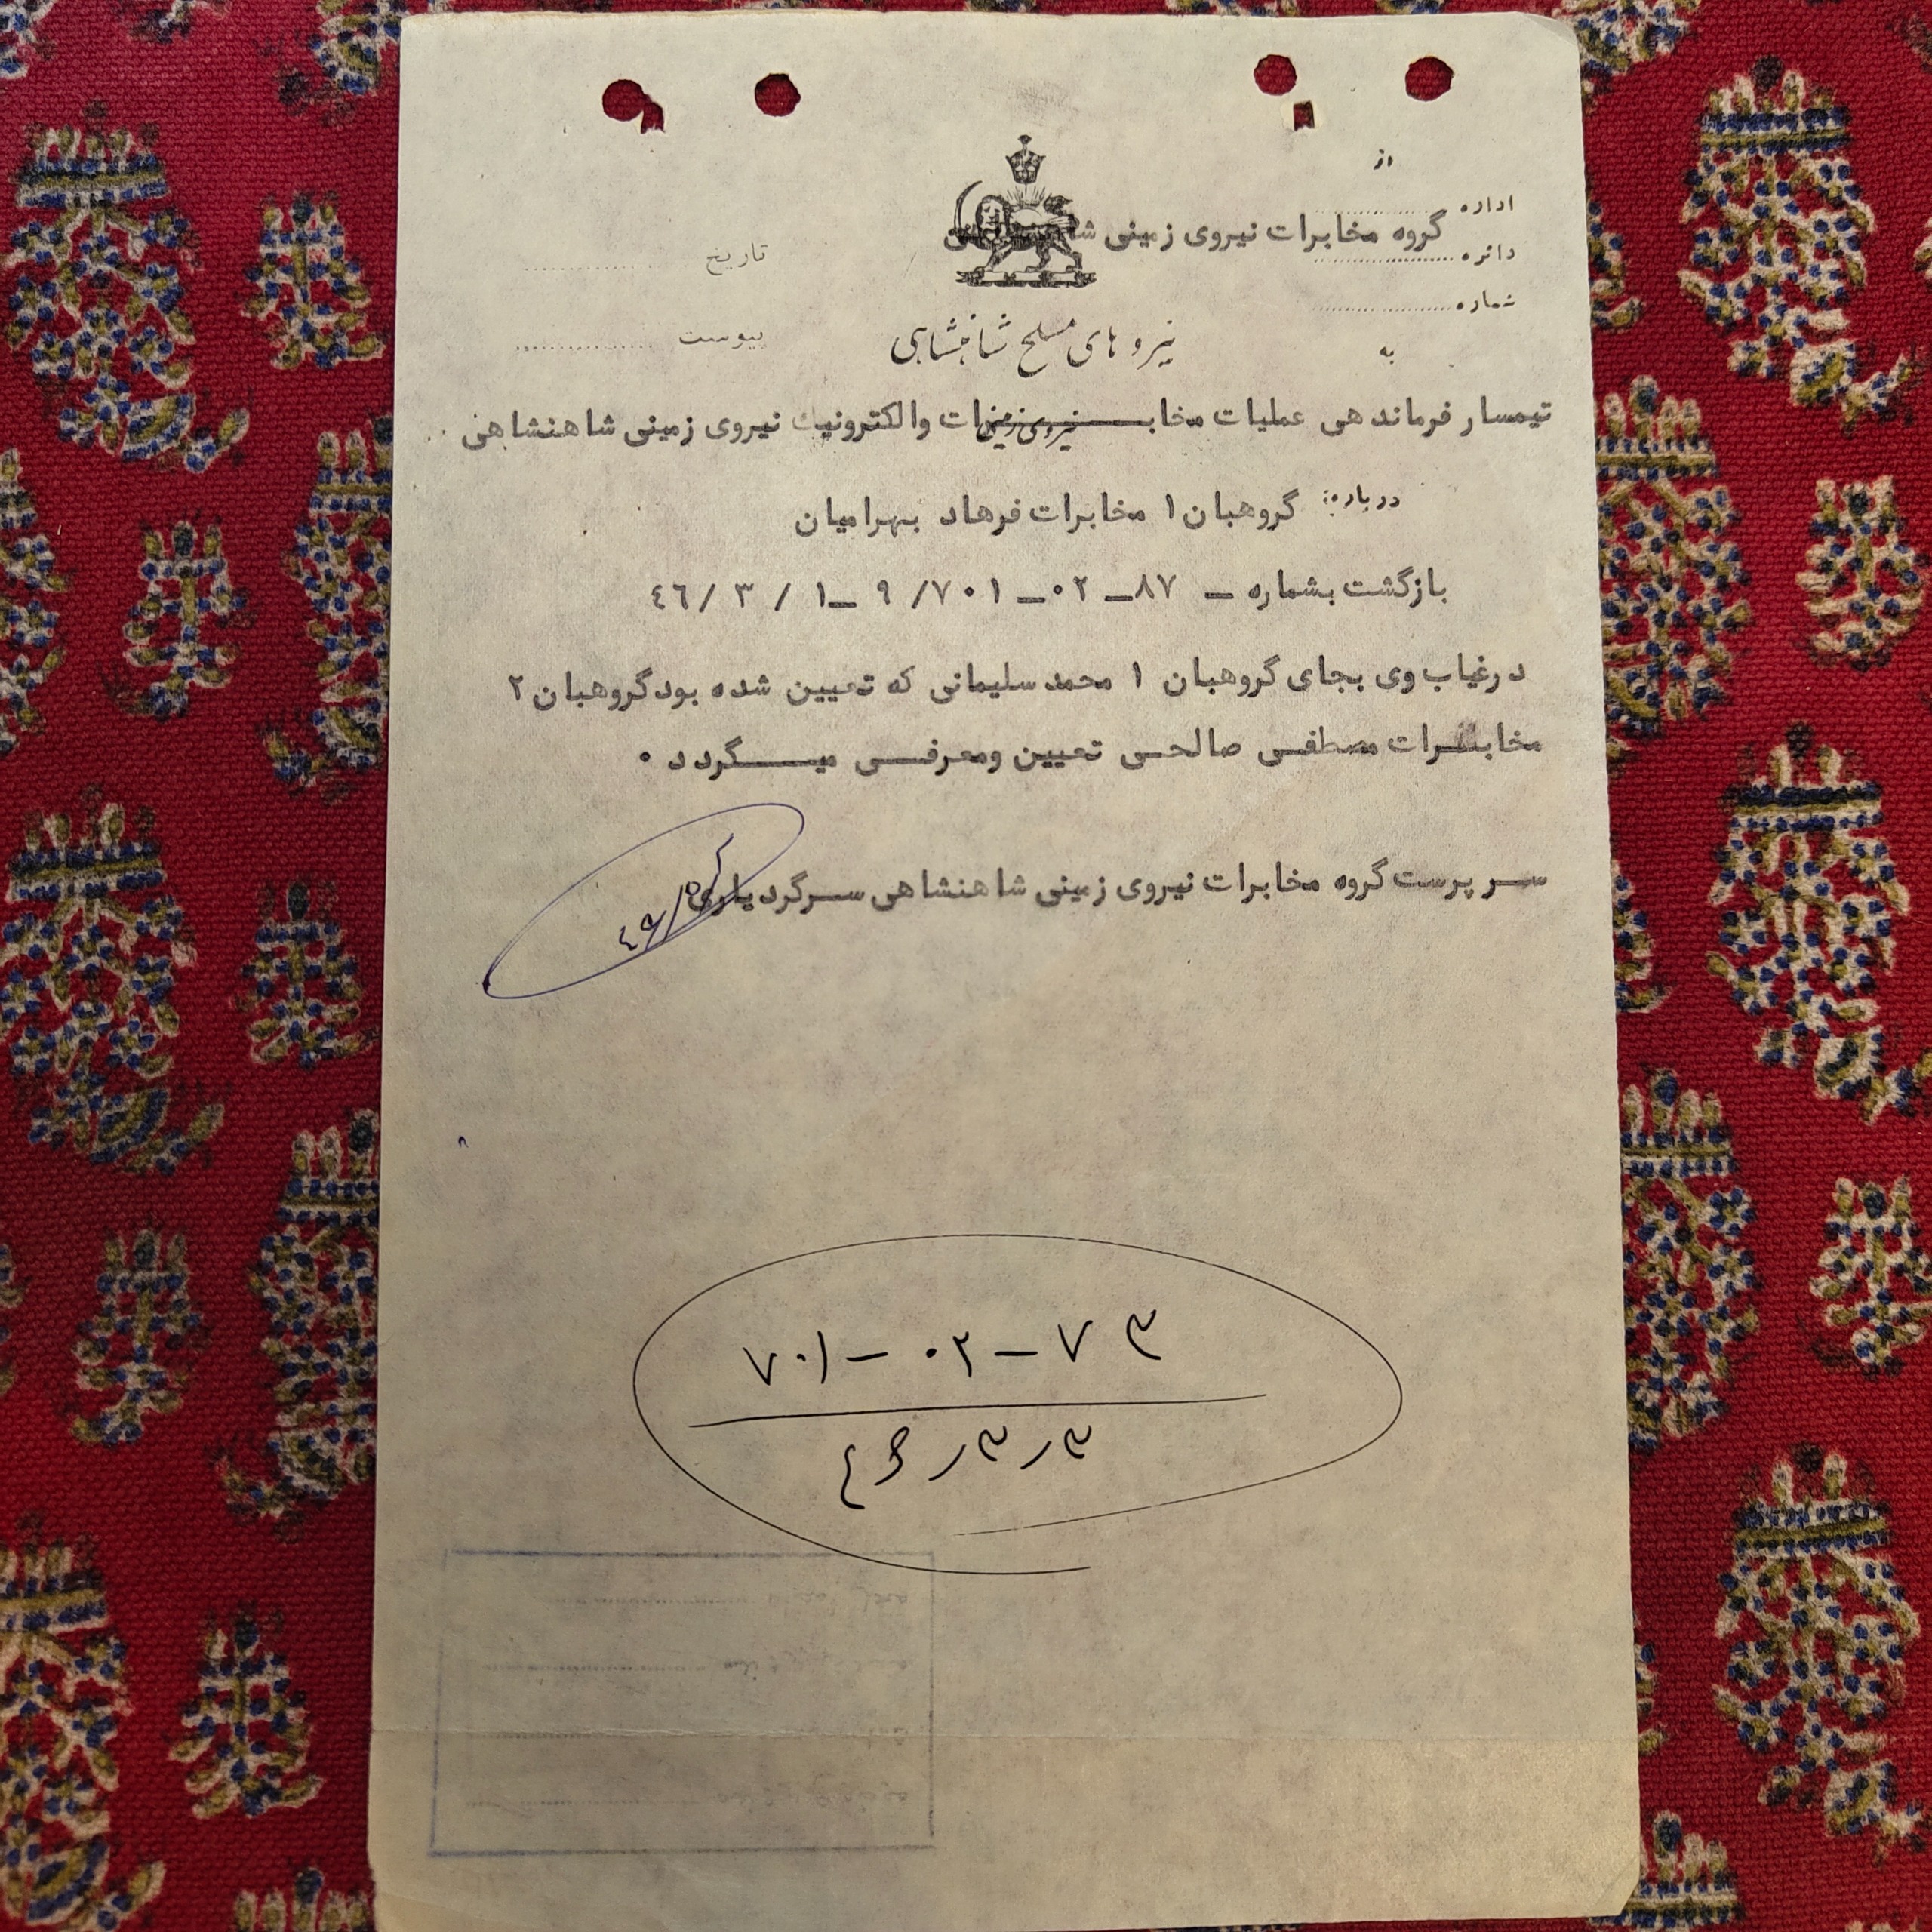 از
اداره
گروه مخابرات نیروی زمینی شاهنشاهی
دائره
شماره
تاریخ
پیوست
نیروهای مسلح شاهنشاهی
به
تیمسار فرماندهی عملیات مخابرات والکترونیک نیروی زمینی شاهنشاهی
درباره: گروهبان ۱ مخابرات فرهاد بهرامیان
بازگشت بشماره – ۸۷–۰۲–۷۰۱/ ۹ –۱ / ۳ /۴۶
درغیاب وی بجای گروهبان ۱ محمد سلیمانی که تعیین شده بود گروهبان ۲
مخابرات مصطفی صالحی تعیین ومعرفی میگردد ۰
سرپرست گروه مخابرات نیروی زمینی شاهنشاهی سرگرد یاری
۷۰۱ – ۰۲ – ۷۳
۴۶ / ۳ / ۳